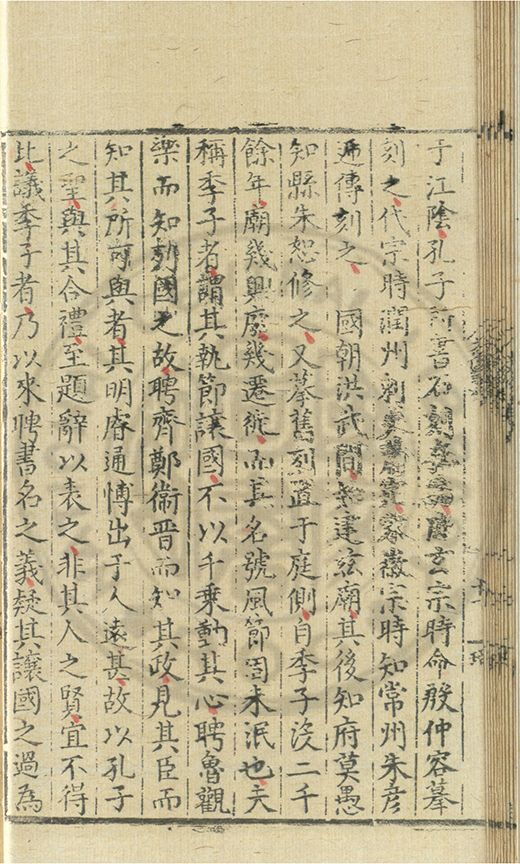 于江陰孔子書石刻玄宗時命殷仲容摹
刻之代宗時潤州刺徽宗時知常州朱彥
遞傳刻之　國朝洪武間建玆廟其後知府莫愚
知縣朱恕修之又摹舊刻置于庭側自季子沒二千
餘年廟幾興廢幾遷徙而其名號風節固未泯也夫
稱季子者謂其執節讓國不以千乗動其心聘魯觀
樂而知列國之故聘齊鄭衞晉而知其政見其臣而
知其所可與者其明睿通博出于人遠甚故以孔子
之聖與其合禮至題辭以表之非其人之賢宜不得
此議季子者乃以來聘書名之義疑其讓國之過為